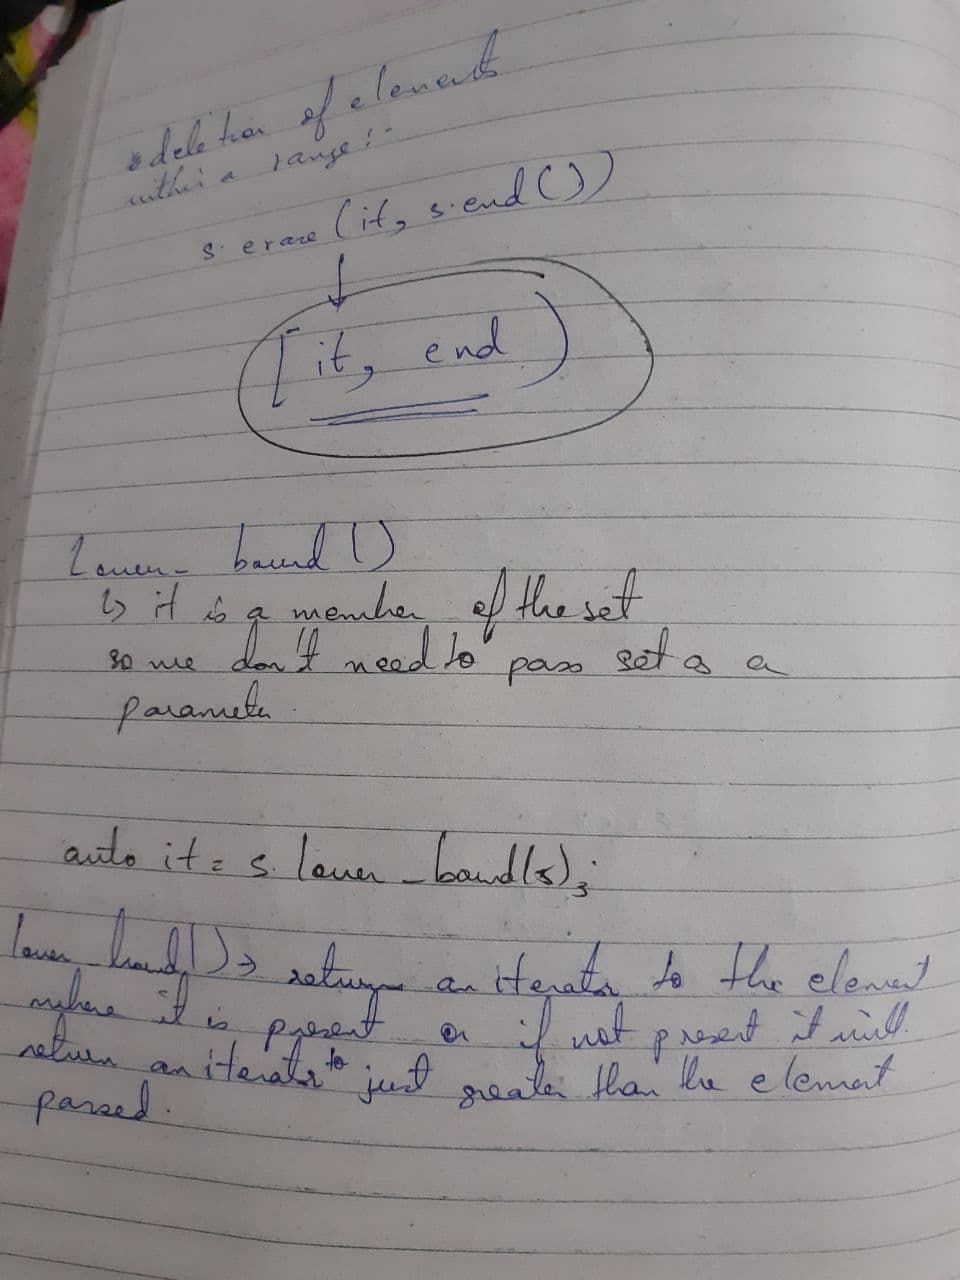 * deletion of elements
within a range :-
s. erase (it, s.end())
[it, end)
Lower_ bound ()
↳ it is a member of the set
so we don't need to pass set as a
parameter.
auto it = s. lower _bound(5);
lower bound() → returns an iterator to the element
where it is present or if not present it will
return an iterator to just greater than the element
passed.